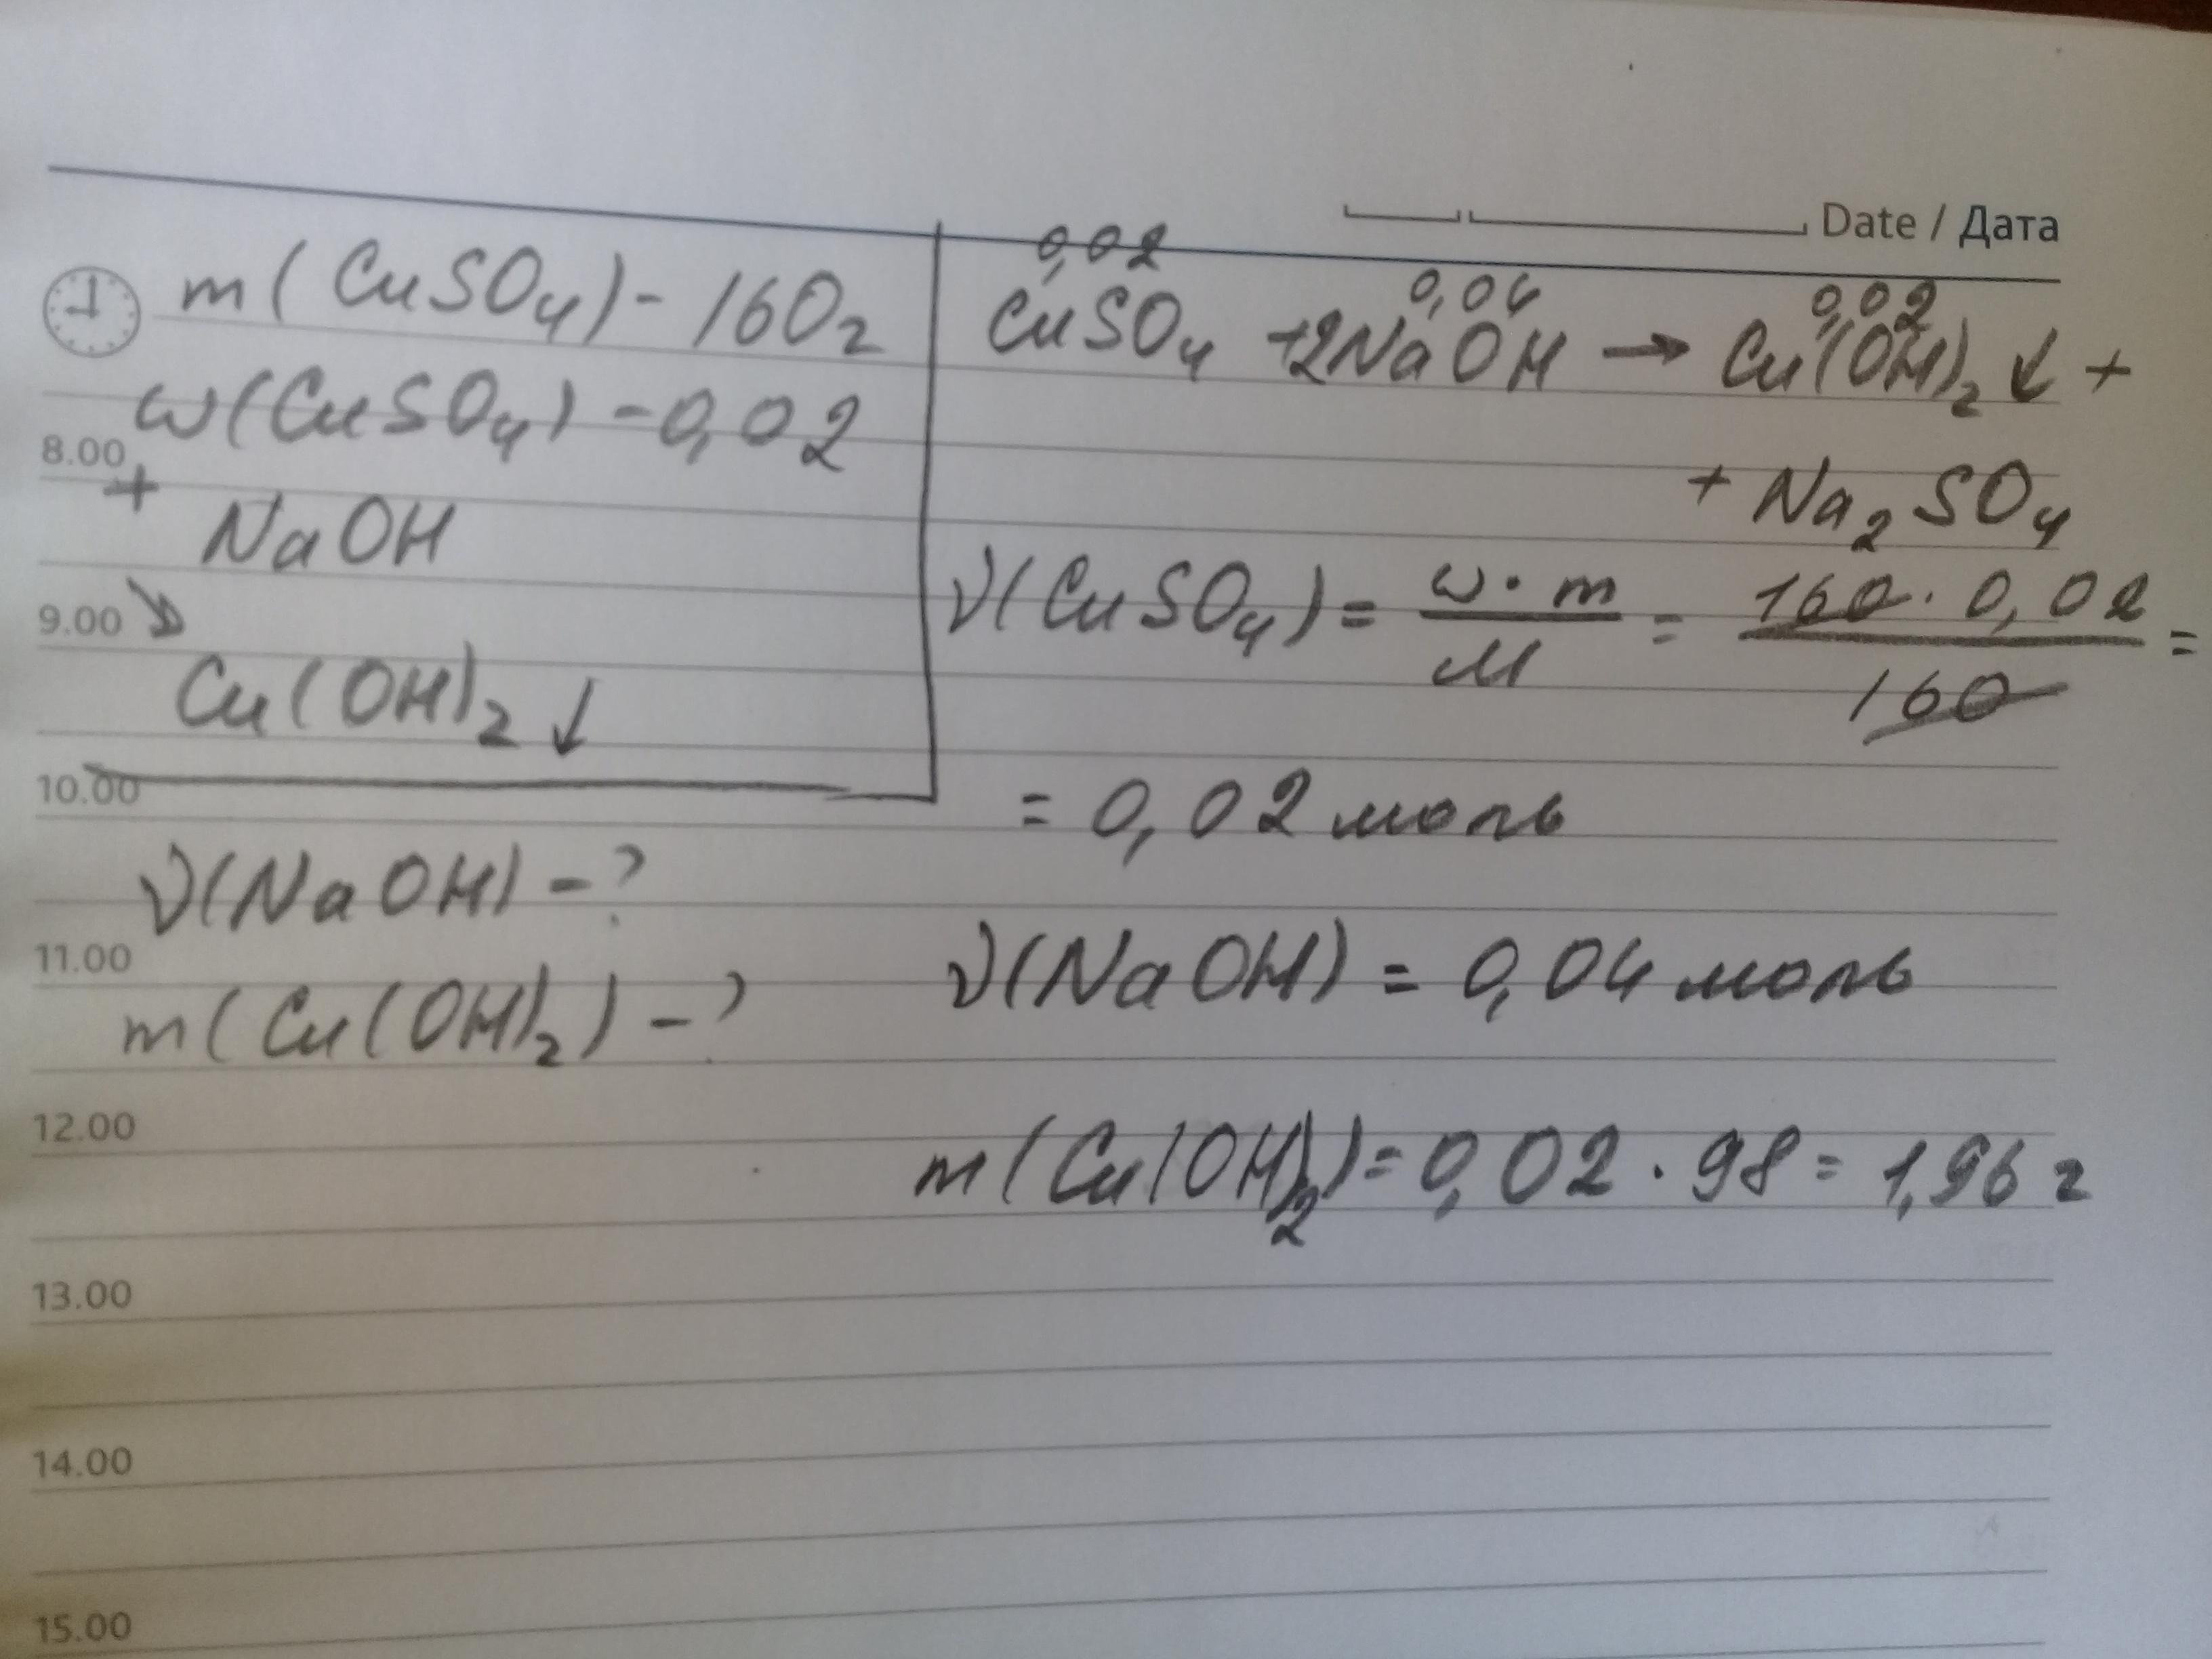 Date / Дата
m(CuSO₄) - 160г
ω(CuSO₄) - 0,02
8.00
+ NaOH
9.00
↘
Cu(OH)₂↓
10.00
ν(NaOH) - ?
11.00
m(Cu(OH)₂) - ?
12.00
13.00
14.00
15.00
0,02 0,04 0,02
CuSO₄ +2NaOH → Cu(OH)₂↓ +
+ Na₂SO₄
ν(CuSO₄) = ω·m / M = 160·0,02 / 160 =
= 0,02 моль
ν(NaOH) = 0,04 моль
m(Cu(OH)₂) = 0,02 · 98 = 1,96 г